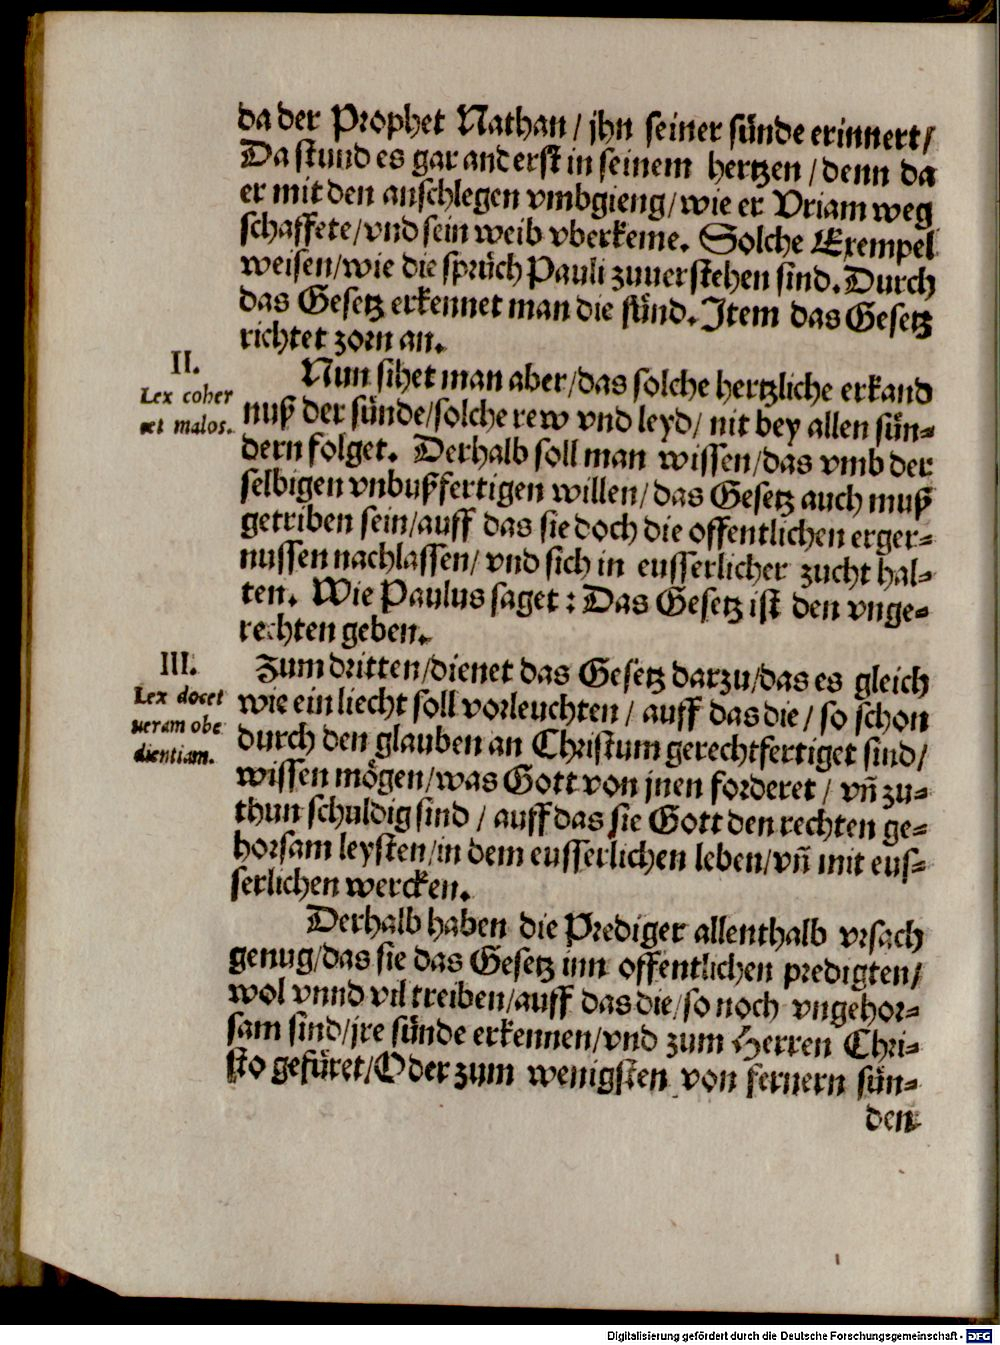 da der Prophet Nathan / jhn seiner sünde erinnert /
Da stund es gar anderst in seinem hertzen / denn da
er mit den anschlegen vmbgieng / wie er Vriam weg
schaffete / vnd sein weib vberkeme. Solche Exempel
weisen / wie die sprüch Pauli zuuerstehen sind. Durch
das Gesetz erkennet man die sünd. Item das Gesetz
richtet zorn an.
II.
Lex coher
cet malos.
Nun sihet man aber / das solche hertzliche erkand
nuß der sünde / solche rew vnd leyd / nit bey allen sün⸗
dern folget. Derhalb soll man wissen / das vmb der
selbigen vnbußfertigen willen / das Gesetz auch muß
getriben sein / auff das sie doch die offentlichen erger⸗
nussen nachlassen / vnd sich in eusserlicher zucht hal⸗
ten. Wie Paulus saget : Das Gesetz ist den vnge⸗
rechten geben.
III.
Lex docet
ueram obe
dientiam.
Zum dritten / dienet das Gesetz darzu / das es gleich
wie ein liecht soll vorleuchten / auff das die / so schon
durch den glauben an Christum gerechtfertiget sind /
wissen mögen / was Gott von jnen forderet / vñ zu⸗
thun schuldig sind / auff das sie Gott den rechten ge⸗
horsam leysten / in dem eusserlichen leben / vñ mit eus⸗
serlichen wercken.
Derhalb haben die Prediger allenthalb vrsach
genug / das sie das Gesetz inn offentlichen predigten /
wol vnnd vil treiben / auff das die / so noch vngehor⸗
sam sind / jre sünde erkennen / vnd zum Herren Chri⸗
sto gefüret / Oder zum wenigsten von fernern sün⸗
den
Digitalisierung gefördert durch die Deutsche Forschungsgemeinschaft - DFG